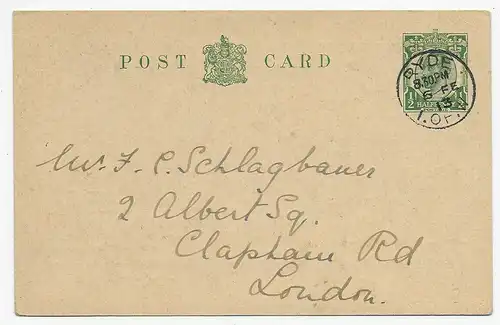 POST CARD
RYDE
8.30PM
6 FE
I. OF. W
½ HALFPENNY ½
Mr. F. C. Schlagbauer
2 Albert Sq.
Clapham Rd
London.